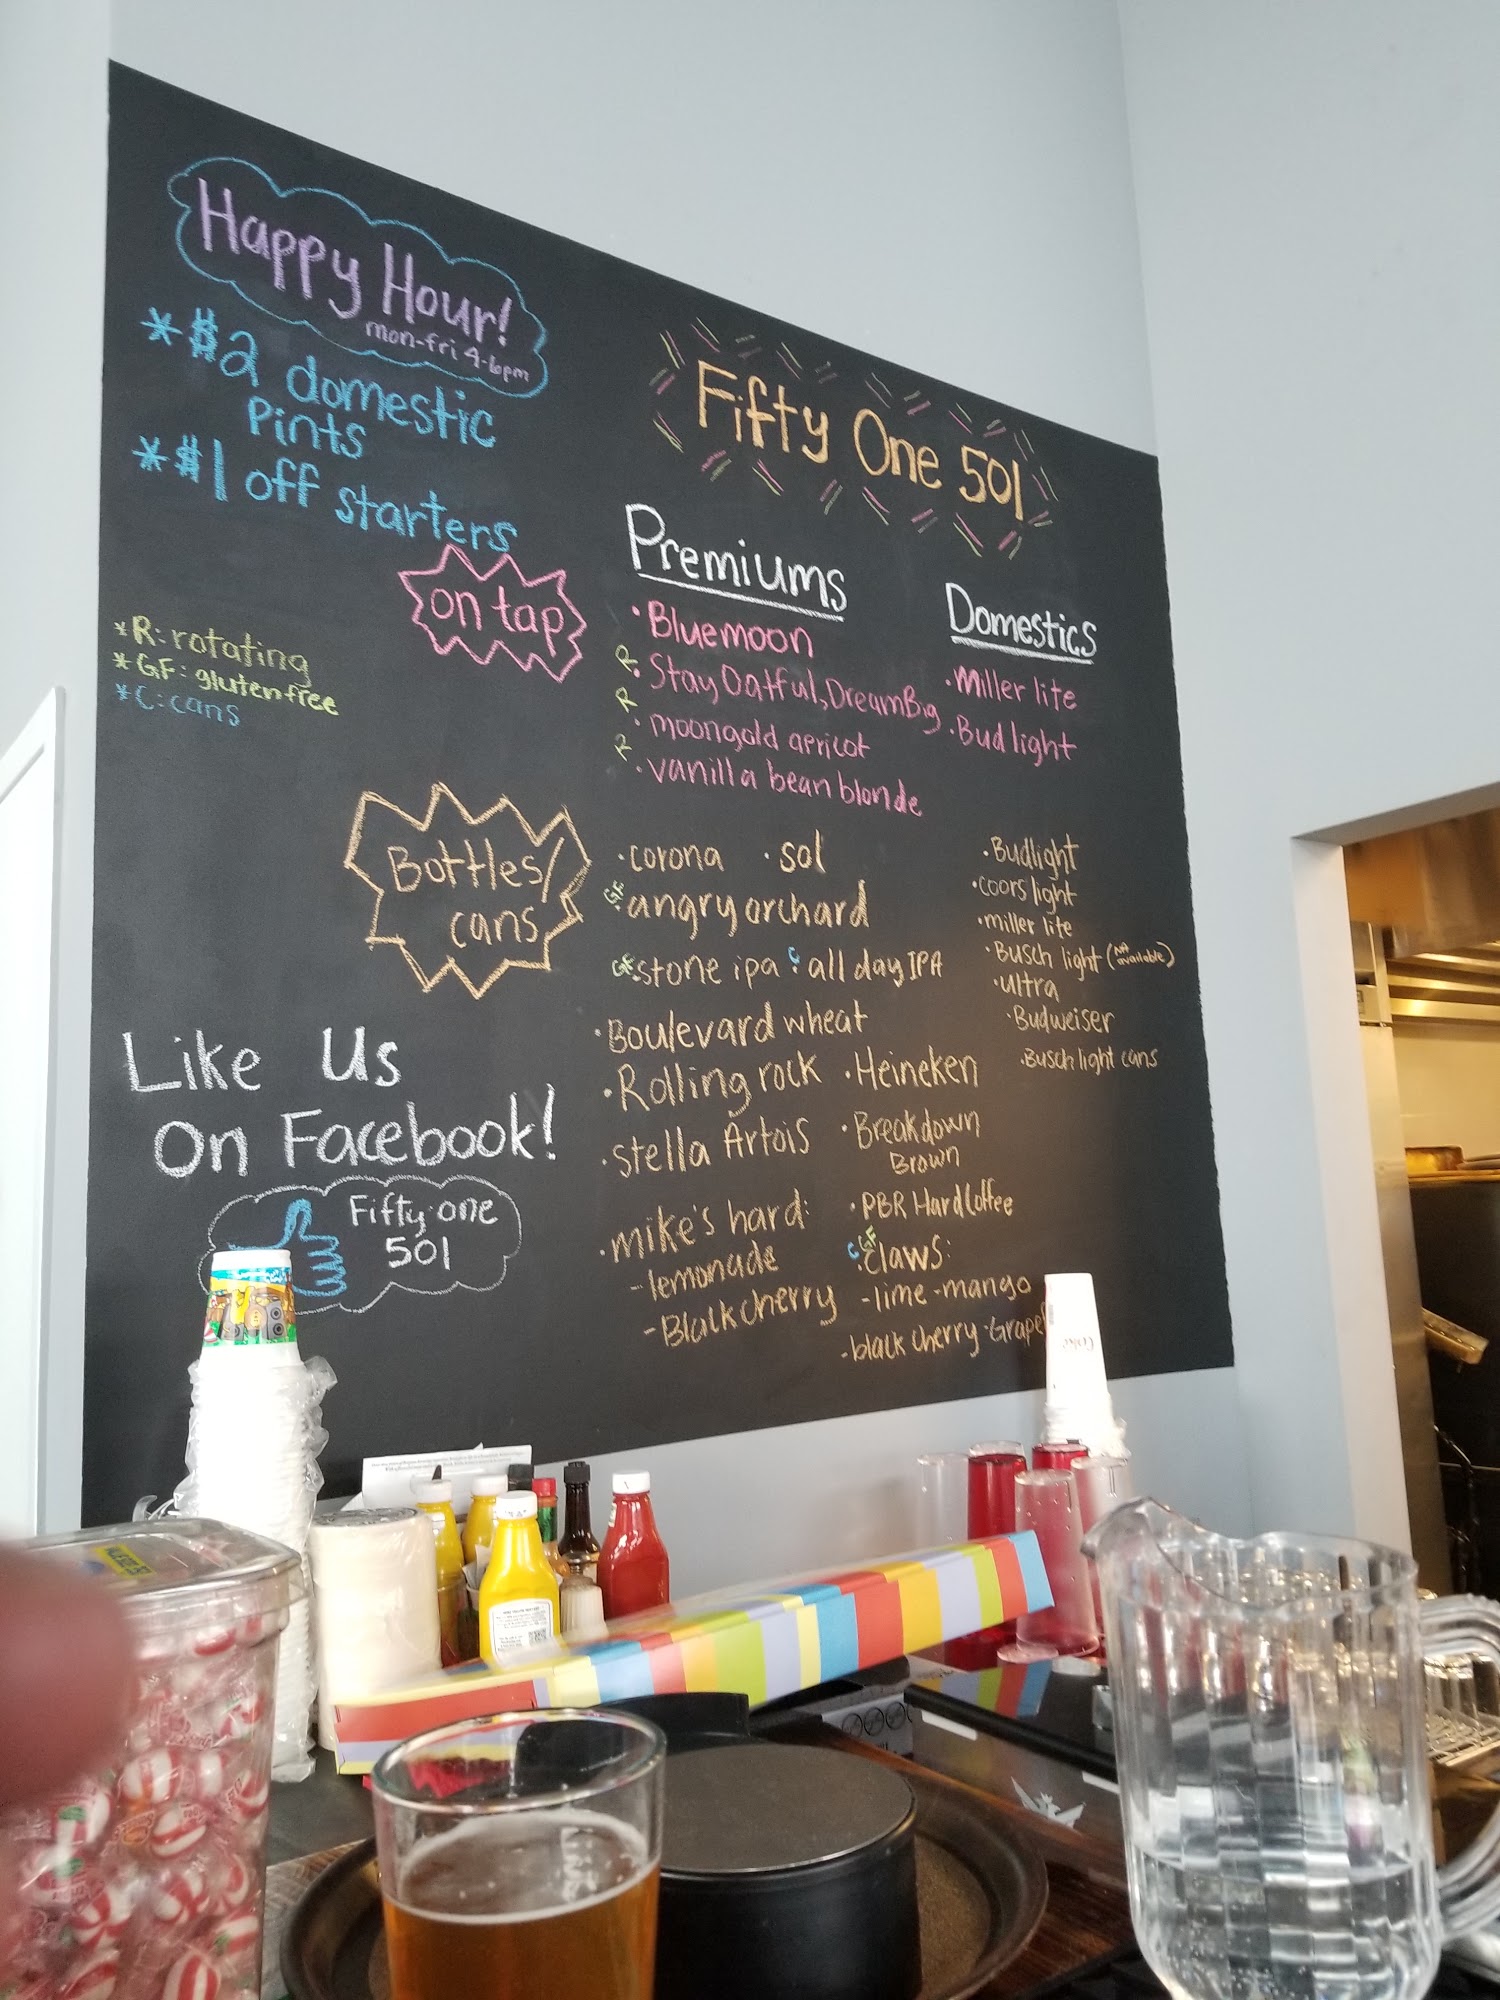 Happy Hour!
mon-fri 4-6pm
*$2 domestic
Pints
*$1 off starters
Fifty One 501
on tap
*R: rotating
*GF: gluten free
*C: cans
Premiums
• Bluemoon
R • Stay Oatful, DreamBig
R • moongold apricot
R • vanilla bean blonde
Domestics
• Miller lite
• Bud light
Bottles/
cans
• corona • sol
GF • angry orchard
GF • stone ipa C • all day IPA
• Boulevard wheat
• Rolling rock • Heineken
• Stella Artois • Breakdown
Brown
• mike's hard:
- lemonade
- Blalkcherry
• PBR Hard Coffee
C GF • Claws:
- lime - mango
- black cherry - Grapef
• Budlight
• Coors light
• miller lite
• Busch light (NA available)
• Ultra
• Budweiser
• Busch light cans
Like Us
On Facebook!
Fifty one
501
Coke